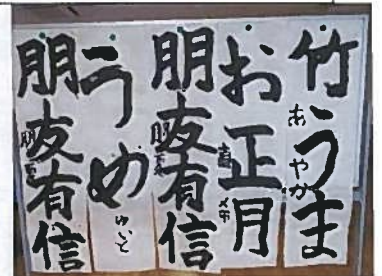 竹うま
あやか
お正月
朋友有信
うめ
ゆいと
朋友有信